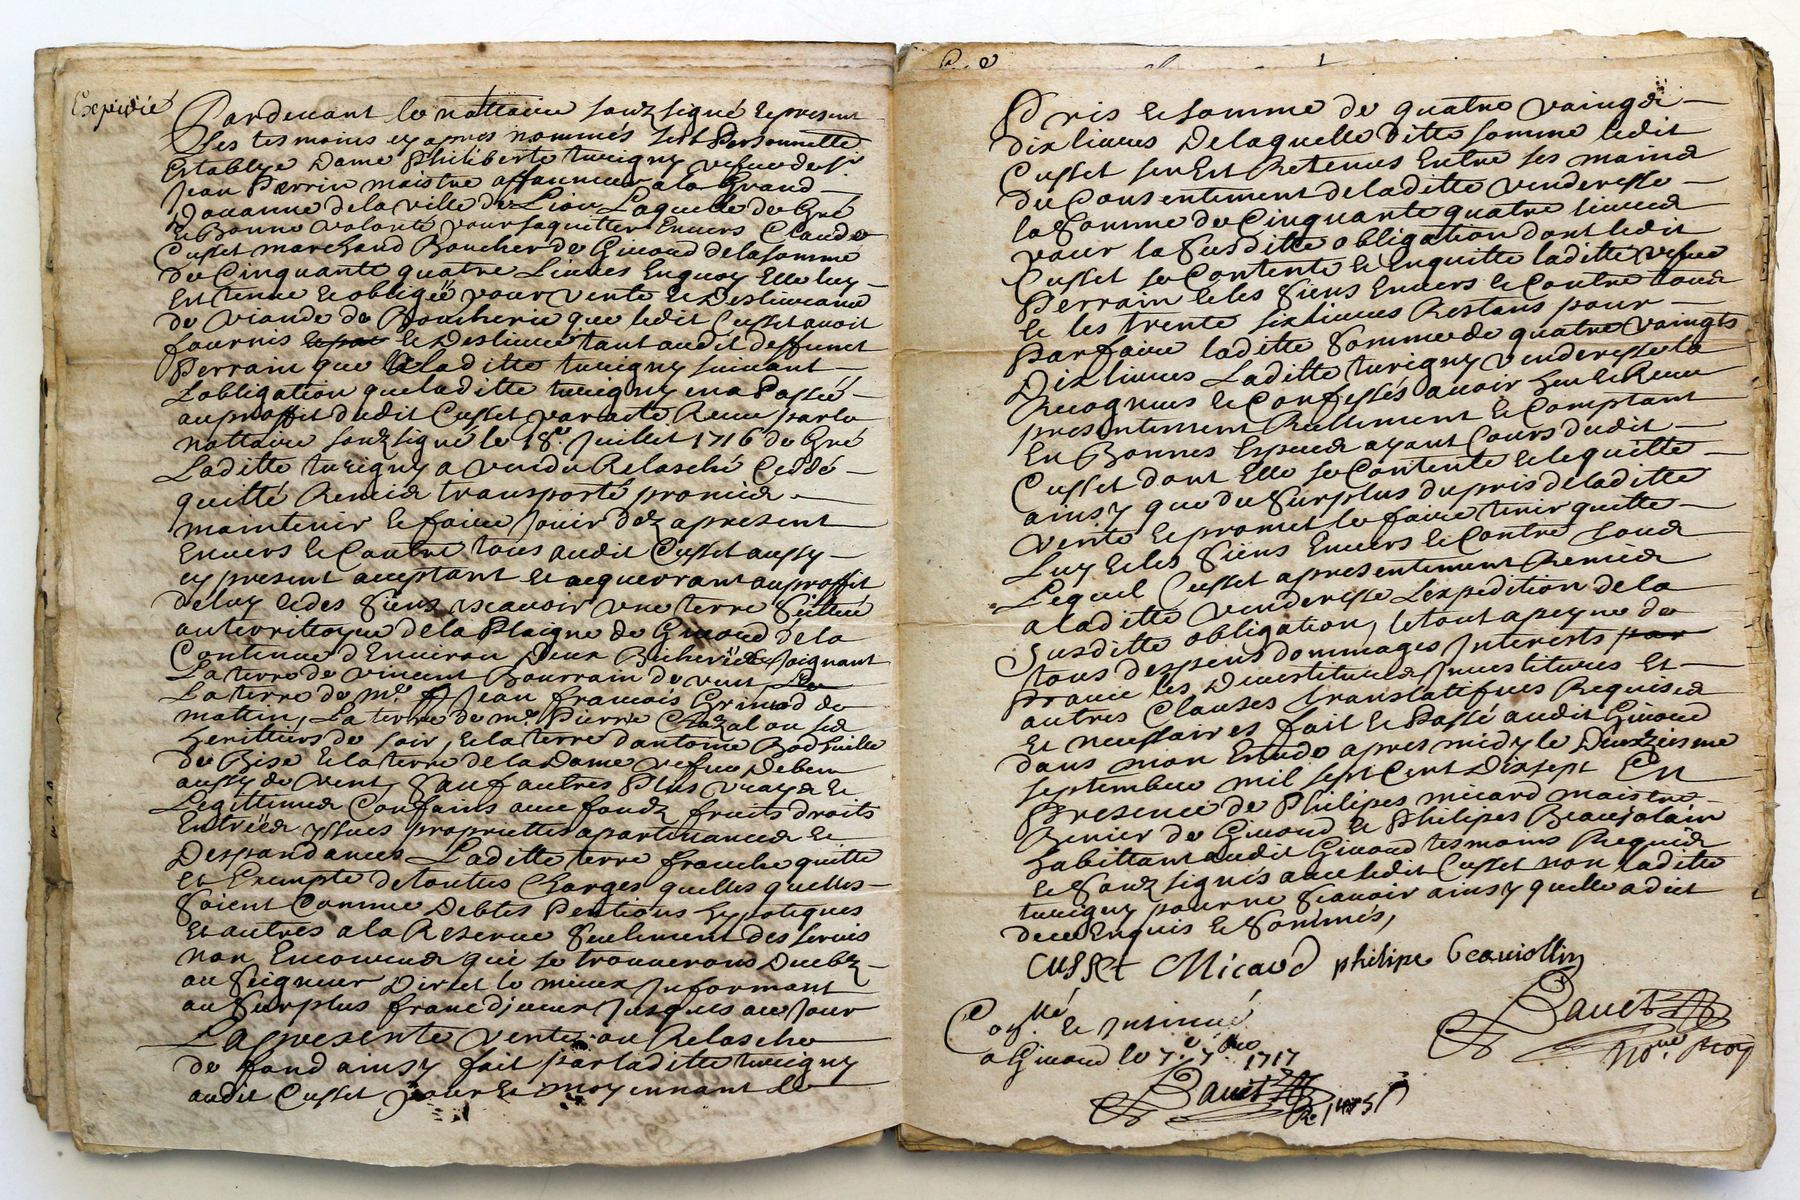 Expedié
Pardevant le nottaire souz signé & present
Les tesmoins cy apres nommés s'est Personnelle
Establye Dame Philiberte turigny vefue de sr
Jean Perrin maistre affanneur a la Grand
Doüanne de la ville de Lion Laquelle de Gré
& Bonne volonté pour saquitter Envers Claude
Cusset marchand Boucher de Giuord de la somme
de Cinquante quatre Liures En quoy Elle luy
Est tenue & obligéë pour vente & Desliurance
de viande de Boucherie que ledit Cusset auoit
fournis & Desliuré tant audit deffunct
Perrain que a laditte turigny suiuant
L'obligation que laditte turigny en a Passéé
au proffit dudit Cusset par acte Receu par le
nottaire souz signé le 18e Juillet 1716 de Gré
Laditte turigny a vendu Relasché Ceddé
quitté Remis transporté promis
maintenir & faire Joüir dez apresent
Enuers & Contre tous audit Cusset aussy
cy present acceptant & acquerrant au proffit
de luy & des siens scauoir vne terre sittuéé
au territoyre de la Plaigne de Giuord de la
Contenue d'Enuiron Deux Bicheréés Joignant
La terre de vincent Bourrain de vent
La terre de me Jean francois Grimod de
mattin, La terre de me Pierre Chazal ou ses
herittiers de soir, & la terre d'antoine
de Bise & la terre de la Dame vefue
aussy de vent, sauf autres Plus vrays &
Legittimes Confains auec fondz fruits droits
Entréés yssues proprietés apartenances &
Despandances Laditte terre franche quitte
Et Exempte de toutes Charges quelles quelles
soient Comme Debtes Pentions hypoteques
Et autres a la Reserue seulement des seruis
non Encourus qui se trouueront Deubz
au seigneur Direct le mieux Informant
au surplus franc d'jceux Jusques a ce Jour
La presente vente ou Relasche
de fond ainsy fait par laditte turigny
audit Cusset pour & moyennant le
Pris & somme de quatre vaingts
dix liures De laquelle ditte somme ledit
Cusset s'en Est Retenus Entre ses mains
du Consentement de laditte venderesse
la somme de Cinquante quatre liures
pour la susditte obligation dont ledit
Cusset se Contente & En quitte laditte vefue
Perrain & les siens Enuers & Contre tous
& les trente six liures Restans pour
Parfaire laditte somme de quatre vaingts
Dix liures Laditte turigny venderesse la
Recognus & Confessés auoir heu & Receu
presentement Réellement & Comptant
En Bonnes Especes ayant Cours dudit
Cusset dont Elle se Contente & le quitte
ainsy que du surplus du pris de laditte
vente & promet le faire tenir quitte
Luy & les siens Enuers & Contre tous
Lequel Cusset a presentement Remis
a laditte venderesse L'expedition de la
susditte obligation, le tout a peyne de
tous despens dommages Interests par
auec les Deuestitures Inuestitures Et
autres Clauses translatifues Requises
Et necessaires fait & Passé audit Giuord
dans mon Estude apres midy le Deuxziesme
septembre mil sept Cent Dixsept En
Presence de Philipes micard maistre
de Giuord & Philipes Beaujolain
habittant audit Giuord tesmoins Requis
& souz signés auec ledit Cusset non laditte
turigny pour ne scauoir ainsy quelle a dict
de ce Enquis & sommés,
CUSSET Micard philipe beauiollin
Bauet
Nore Roy
Coñllé & Insinué
a Giuord le 7e 7bre 1717
Bauet